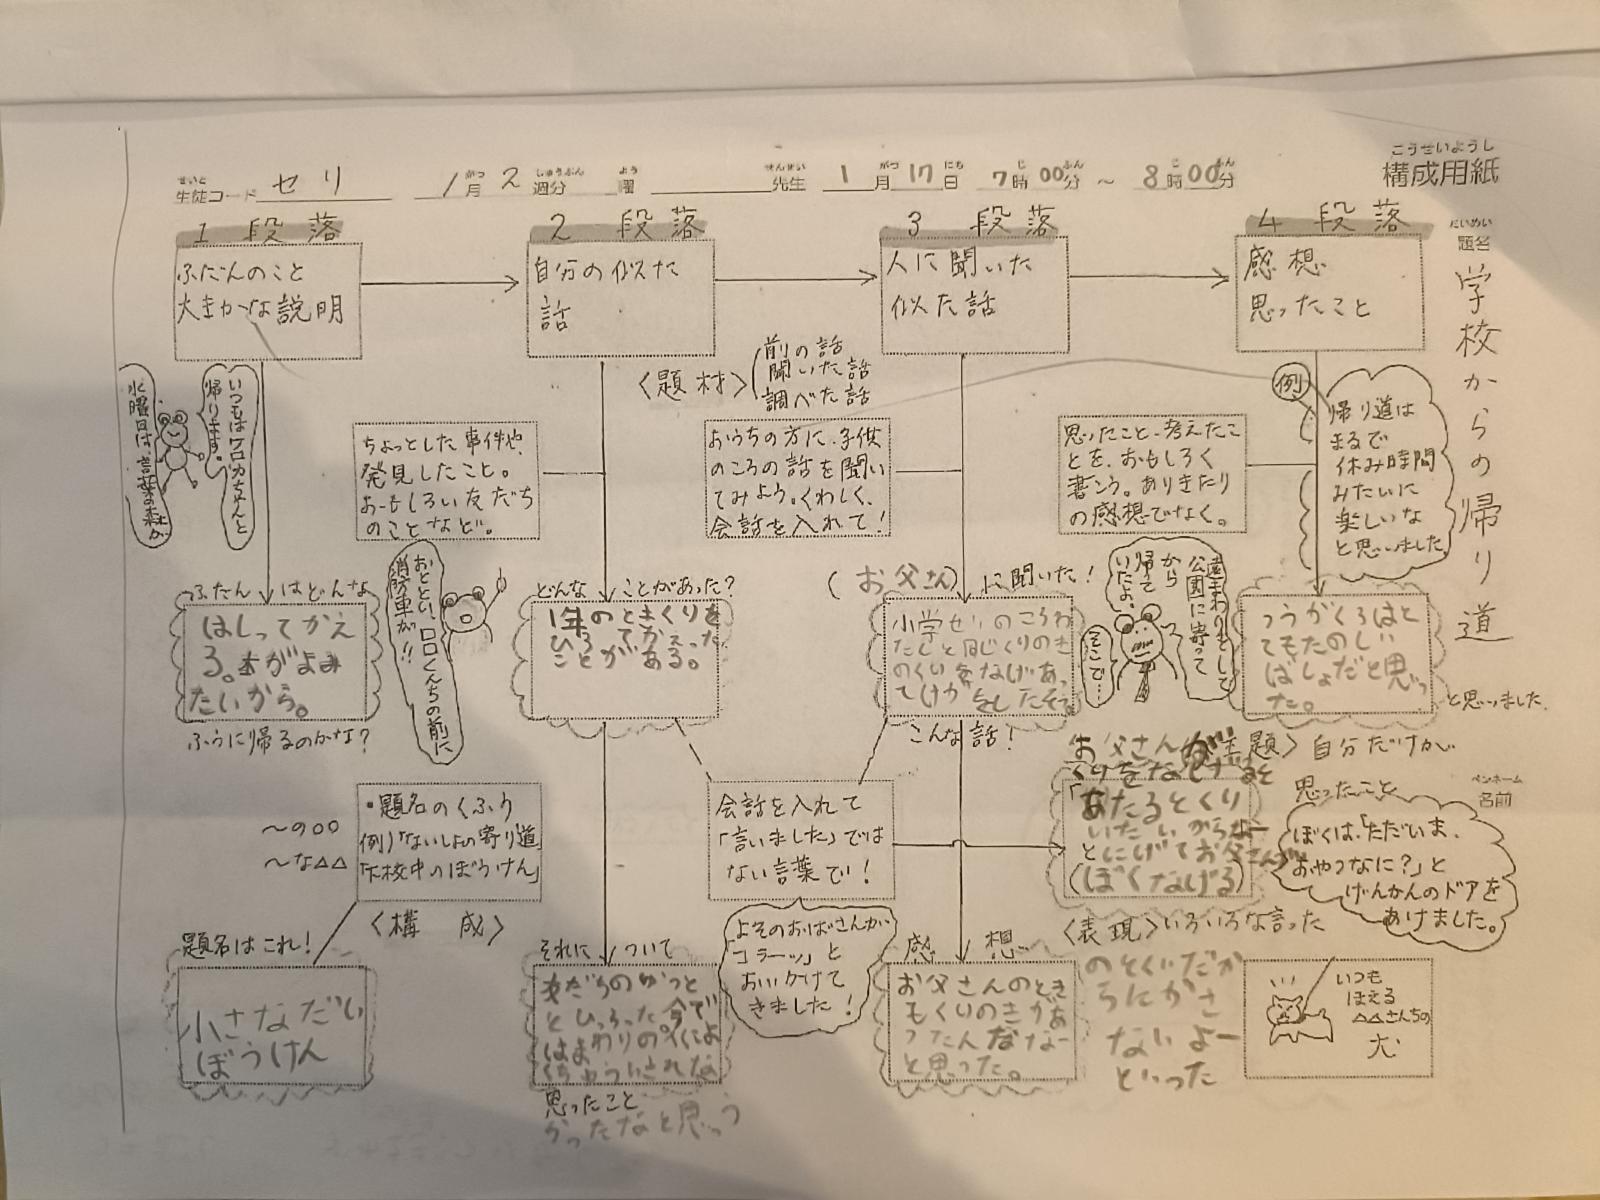 こうせいようし
構成用紙
せいと
生徒コード セリ
がつ しゅうぶん よう せんせい がつ にち じ ふん じ ふん
1月2週分 曜 先生 1月17日 7時00分 ～ 8時00分
だいめい
題名
学校からの帰り道
1 段落
ふだんのこと
大まかな説明
2 段落
自分の似た
話
3 段落
人に聞いた
似た話
4 段落
感想
思ったこと
いつもはケロカちゃんと
帰ります。
水曜日は、言葉の森が
ちょっとした事件や、
発見したこと。
おもしろい友だち
のことなど。
〈題材〉
前の話
聞いた話
調べた話
おうちの方に、子供
のころの話を聞い
てみよう。くわしく、
会話を入れて！
思ったこと、考えたこ
とを、おもしろく
書こう。ありきたり
の感想でなく。
例
帰り道は
まるで
休み時間
みたいに
楽しいな
と思いました。
ふだん はどんな
はしってかえ
る。本がよみ
たいから。
ふうに帰るのかな？
おととい、ロロくんちの前に
消防車が！！
どんな ことがあった？
1年のときくりを
ひろってかえった
ことがある。
(お父さん)に聞いた！
小学せいのころわ
たしと同じくりのき
のくい をなげあ
ってけがをしたそう。
こんな話！
遠まわりをして
公園に寄って
から
帰って
いたよ。
そこで…
つうがくろはと
てもたのしい
ばしょだと思っ
た。
と思いました。
・題名のくふう
～の○○
～な△△
例)「ないしょの寄り道」
「下校中のぼうけん」
〈構 成〉
会話を入れて
「言いました」では
ない言葉で！
お父さんが
くりをなげると
「あたるとくり
いたいからなー
とにげてお父さんが
(ぼくなげる)
〈主題〉自分だけが
思ったこと
ペンネーム
名前
ぼくは、「ただいま、
おやつなに？」と
げんかんのドアを
あけました。
題名はこれ！
小さなだい
ぼうけん
それに ついて
友だちのかっと
とひろった。今で
はまわりの
ちゅういされな
思ったこと
かったなと思う
よそのおばさんが
「コラーッ」と
おいかけて
きました！
感 想
お父さんのとき
もくりのきがあ
ったんだなー
と思った。
〈表現〉いろいろな言った
のそくいだか
らにがさ
ないよー
といった
いつも
ほえる
△△さんちの
犬